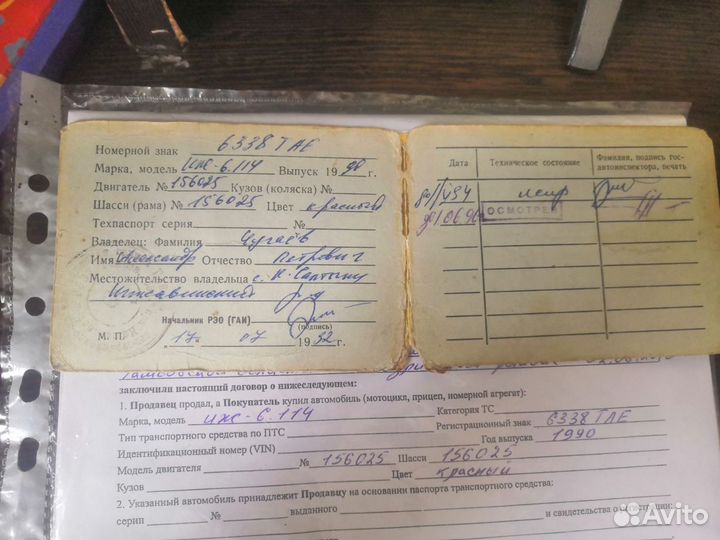 Номерной знак 6338 ТАЕ
Марка, модель ИЖ-6.114 Выпуск 1990 г.
Двигатель № 156025 Кузов (коляска) №
Шасси (рама) № 156025 Цвет красный
Техпаспорт серия №
Владелец: Фамилия Чугаев
Имя Александр Отчество Петрович
Местожительство владельца с. Н.
Начальник РЭО (ГАИ)
(подпись)
М. П. 17 07 1992 г.
Дата Техническое состояние Фамилия, подпись гос-
автоинспектора, печать
испр
ОСМОТРЕН
заключили настоящий договор о нижеследующем:
1. Продавец продал, а Покупатель купил автомобиль (мотоцикл, прицеп, номерной агрегат):
Марка, модель иж-6.114 Категория ТС
Тип транспортного средства по ПТС Регистрационный знак 6338 ТАЕ
Идентификационный номер (VIN) Год выпуска 1990
Модель двигателя № 156025 Шасси 156025
Кузов Цвет красный
2. Указанный автомобиль принадлежит Продавцу на основании паспорта транспортного средства:
серии № выданного и свидетельства о регистрации:
Avito